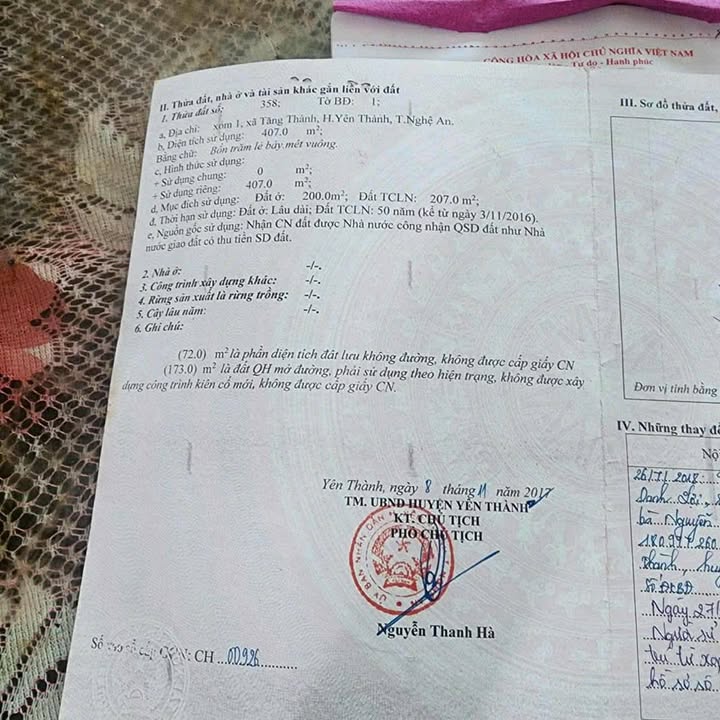 CỘNG HÒA XÃ HỘI CHỦ NGHĨA VIỆT NAM
Tự do - Hạnh phúc
II. Thửa đất, nhà ở và tài sản khác gắn liền với đất
1. Thửa đất số: 358; Tờ BĐ: 1;
a, Địa chỉ: xóm 1, xã Tăng Thành, H.Yên Thành, T.Nghệ An.
b, Diện tích sử dụng: 407.0 m²;
Bằng chữ: Bốn trăm lẻ bảy mét vuông.
c, Hình thức sử dụng:
+ Sử dụng chung: 0 m²;
+ Sử dụng riêng: 407.0 m²;
d, Mục đích sử dụng: Đất ở: 200.0m²; Đất TCLN: 207.0 m²;
đ, Thời hạn sử dụng: Đất ở: Lâu dài; Đất TCLN: 50 năm (kể từ ngày 3/11/2016).
e, Nguồn gốc sử dụng: Nhận CN đất được Nhà nước công nhận QSD đất như Nhà
nước giao đất có thu tiền SD đất.
2. Nhà ở: -/-.
3. Công trình xây dựng khác: -/-.
4. Rừng sản xuất là rừng trồng: -/-.
5. Cây lâu năm: -/-.
6. Ghi chú:
(72.0) m² là phần diện tích đất lưu không đường, không được cấp giấy CN
(173.0) m² là đất QH mở đường, phải sử dụng theo hiện trạng, không được xây
dựng công trình kiên cố mới, không được cấp giấy CN.
Yên Thành, ngày 8 tháng 11 năm 2017
TM. UBND HUYỆN YÊN THÀNH
KT. CHỦ TỊCH
PHÓ CHỦ TỊCH
ỦY BAN NHÂN DÂN
Nguyễn Thanh Hà
Số vào sổ cấp GCN: CH ...00926...
III. Sơ đồ thửa đất,
Đơn vị tính bằng
IV. Những thay đổ
Nội
26/7/2018:
Danh
bà Nguyễn
Thành, huy
Ngày 27/
Người sử
hồ sơ số